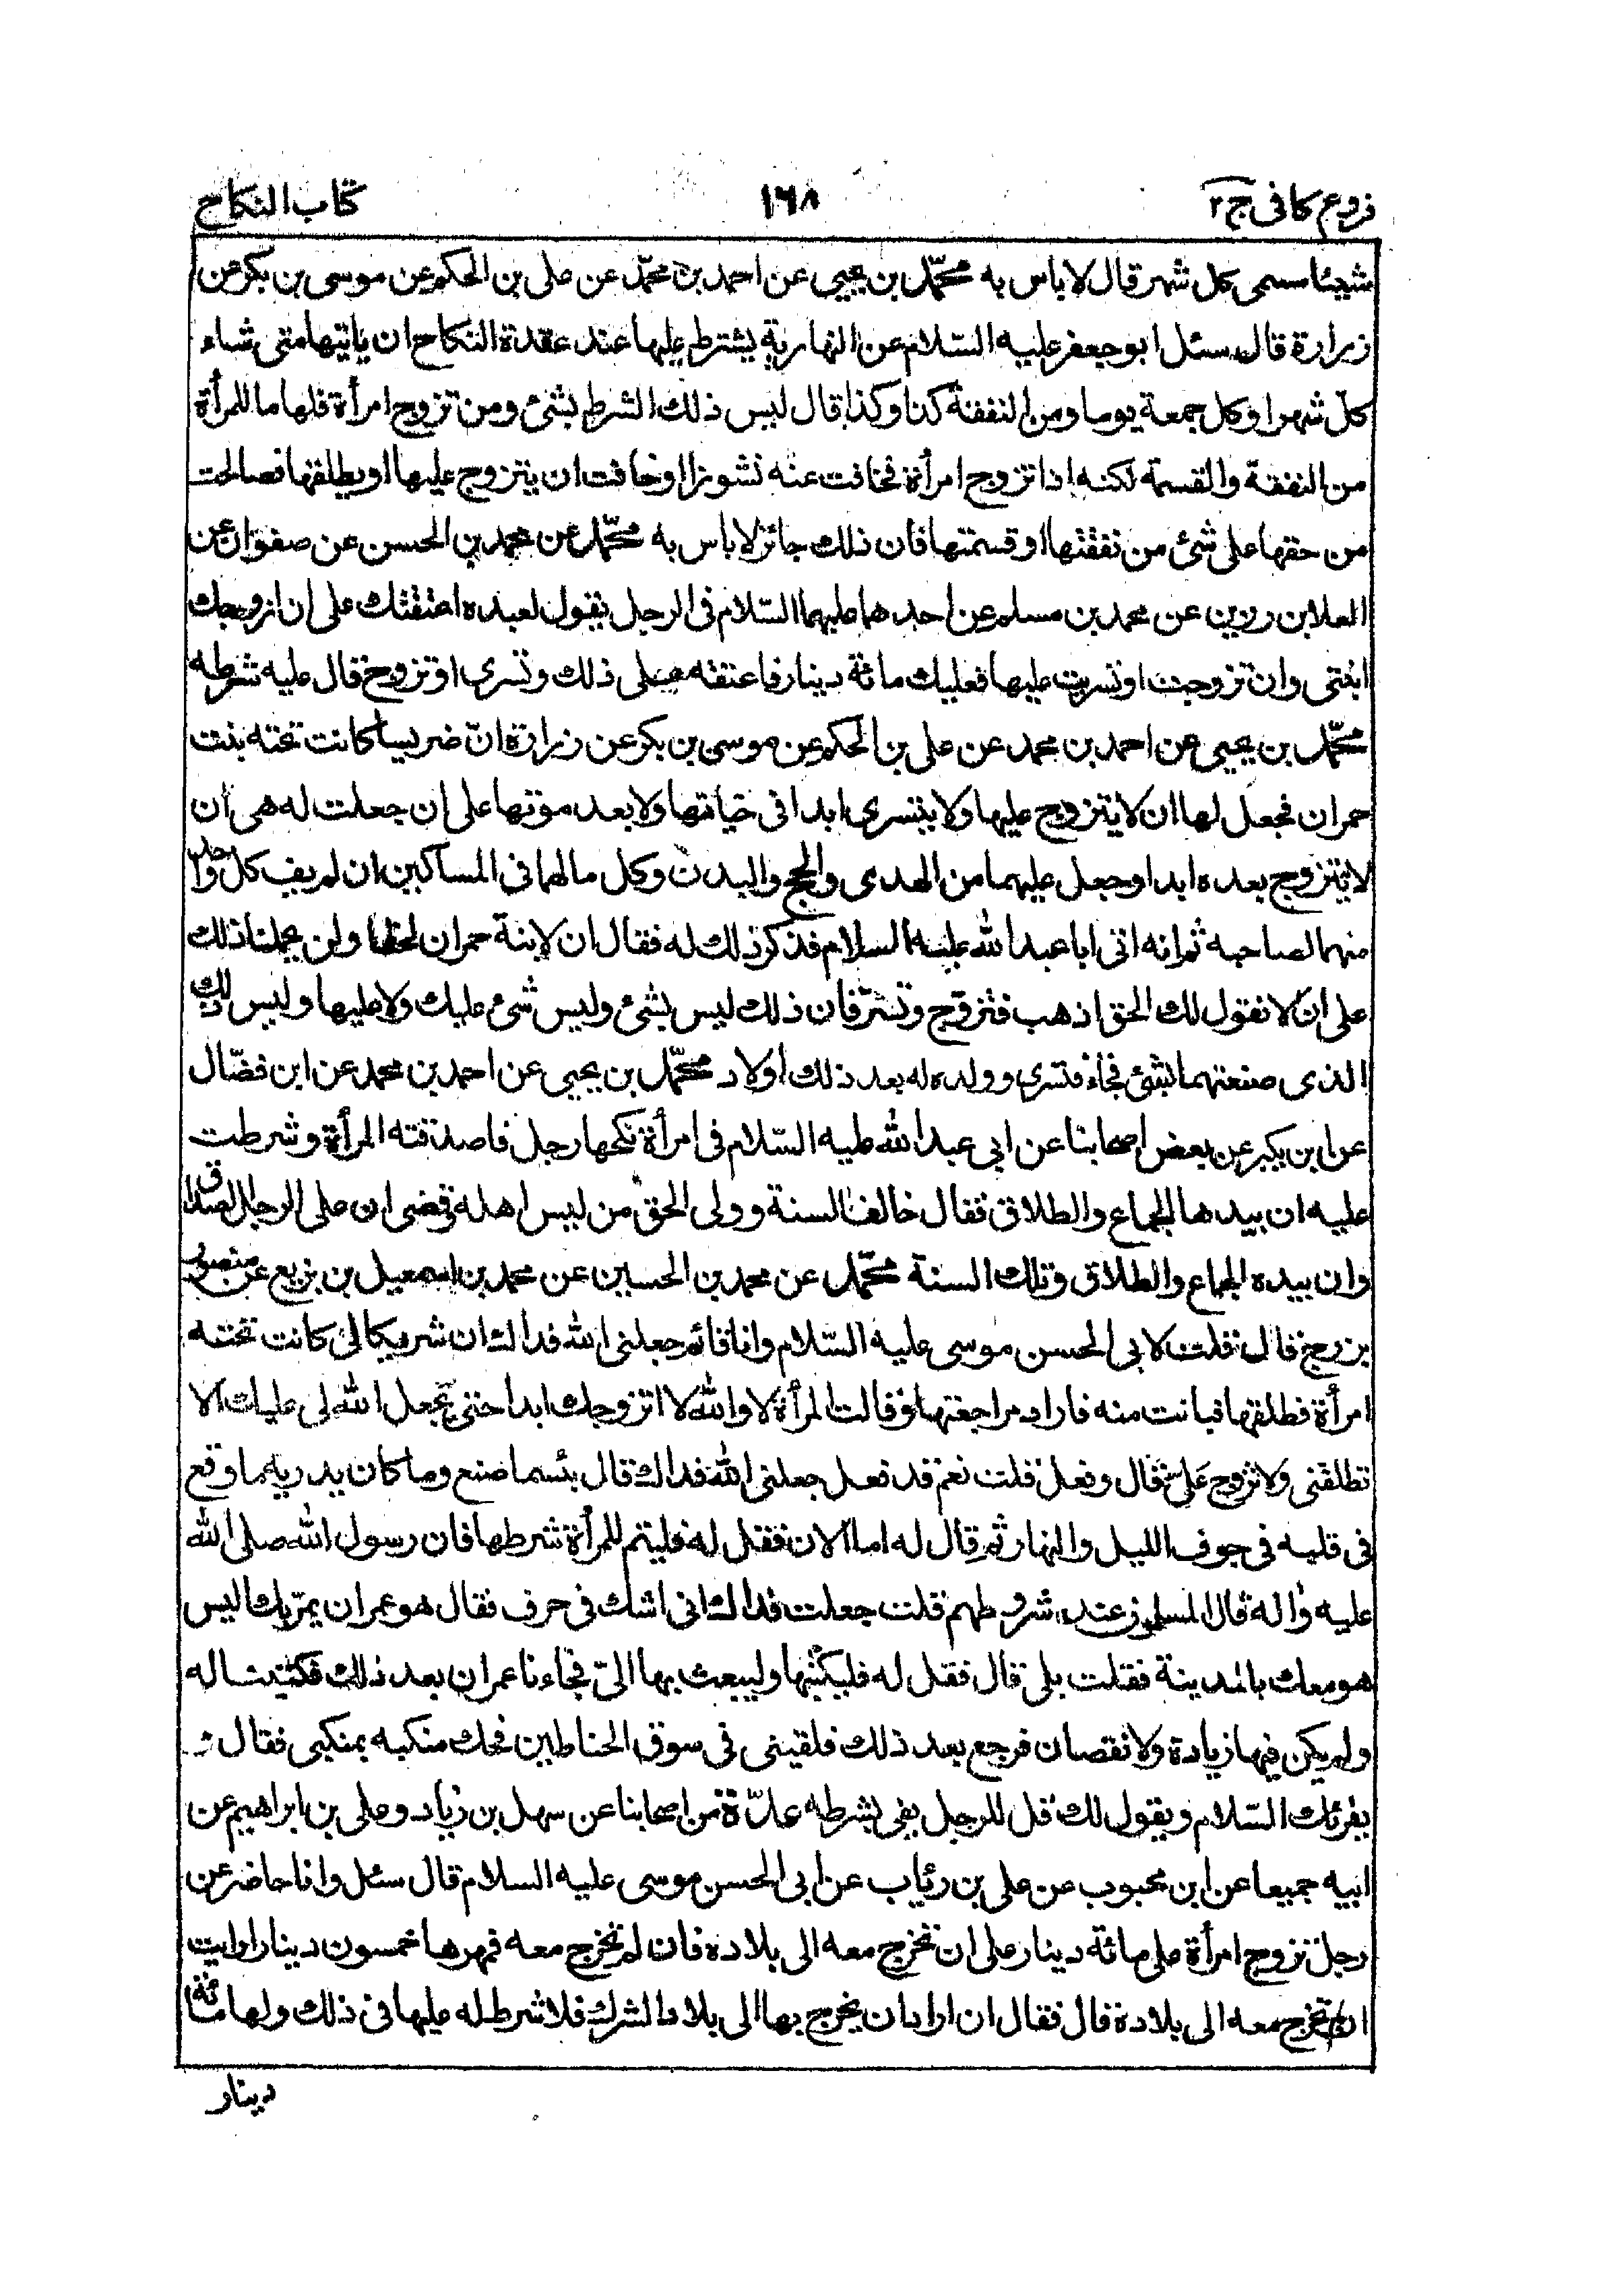 فروع كافى ج٢
١٦٨
كتاب النكاح
شيئا مسمى كل شهر قال لا باس به محمّد بن يحيى عن احمد بن محمّد عن على بن الحكم عن موسى بن بكر عن
زرارة قال سئل ابو جعفر عليه السّلام عن النهارية يشترط عليها عند عقدة النكاح ان ياتيها متى شاء
كلّ شهر او كل جمعة يوما ومن النفقة كذا وكذا قال ليس ذلك الشرط بشئ ومن تزوج امرأة فلها ما للمرأة
من النفقة والقسمة لكنه اذا تزوج امرأة فخافت عنه نشوزا او خافت ان يتزوج عليها او يطلقها فصالحت
من حقها على شئ من نفقتها او قسمتها فان ذلك جائز لا باس به محمّد عن محمد بن الحسن عن صفوان عن
العلا بن رزين عن محمد بن مسلم عن احدهما عليهما السّلام فى الرجل يقول لعبده اعتقتك على ان ازوجك
ابنتى وان تزوجت او تسريت عليها فعليك مائة دينار فاعتقه على ذلك وتسرى او تزوج قال عليه شرطه
محمّد بن يحيى عن احمد بن محمد عن على بن الحكم عن موسى بن بكر عن زرارة انّ ضريسا كانت تحته بنت
حمران فجعل لها ان لا يتزوج عليها ولا يتسرى ابدا فى حياتها ولا بعد موتها على ان جعلت له هى ان
لا تتزوج بعده ابدا وجعل عليهما من الهدى والحج والبدن وكل مالهما فى المساكين ان لم يف كل واحد
منهما لصاحبه ثم انه اتى ابا عبد الله عليه السلام فذكر ذلك له فقال ان لابنة حمران لحقا ولن يحملنا ذلك
على ان لا نقول لك الحق اذهب فتزوّج وتسرّ فان ذلك ليس بشئ وليس شئ عليك ولا عليها وليس ذلك
الذى صنعتهما بشئ فجاء فتسرى وولد له بعد ذلك اولاد محمّد بن يحيى عن احمد بن محمد عن ابن فضّال
عن ابن بكير عن بعض اصحابنا عن ابى عبد الله عليه السّلام فى امرأة نكحها رجل فاصدقته المرأة وشرطت
عليه ان بيدها الجماع والطلاق فقال خالف السنة وولى الحق من ليس اهله وقضى ان على الرجل الصداق
وان بيده الجماع والطلاق وتلك السنة محمّد عن محمد بن الحسين عن محمد بن اسمعيل بن بزيع عن منصور
بزرج قال قلت لابى الحسن موسى عليه السّلام وانا قائم جعلنى الله فداك ان شريكا لى كانت تحته
امرأة فطلقها فبانت منه فاراد مراجعتها وقالت المرأة لا والله لا اتزوجك ابدا حتى تجعل الله لى عليك الا
تطلقنى ولا تزوج علىّ قال وفعل قلت نعم قد فعل جعلنى الله فداك قال بئسما صنع وما كان يدريه ما وقع
فى قلبه فى جوف الليل والنهار ثم قال له اما الان فقل له فليتم للمرأة شرطها فان رسول الله صلى الله
عليه واله قال المسلمون عند شروطهم قلت جعلت فداك انى اشك فى حرف فقال هو عمران يمرّ بك اليس
هو معك بالمدينة فقلت بلى قال فقل له فليكتبها وليبعث بها الىّ فجاءنا عمران بعد ذلك فكتبناها له
ولم يكن فيها زيادة ولا نقصان فرجع بعد ذلك فلقينى فى سوق الحناطين فحك منكبه بمنكبى فقال
يقرئك السّلام ويقول لك قل للرجل يفى بشرطه عدّة من اصحابنا عن سهل بن زياد وعلى بن ابراهيم عن
ابيه جميعا عن ابن محبوب عن على بن رئاب عن ابى الحسن موسى عليه السلام قال سئل وانا حاضر عن
رجل تزوج امرأة على مائة دينار على ان تخرج معه الى بلاده فان لم تخرج معه فمهرها خمسون دينارا ارايت
ان لم تخرج معه الى بلاده قال فقال ان اراد ان يخرج بها الى بلاد الشرك فلا شرط له عليها فى ذلك ولها مائة
دينار